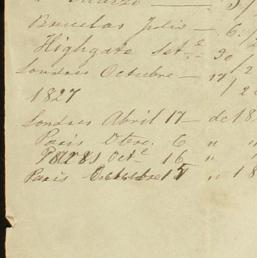 Bruselas Julio — 6.
Highgate Set.e — 30
Londres Octubre — 17
1827
Londres Abril 17 — de 18
Paris 6 " "
Oct.e 16 "
Paris Octubre 15 " 18